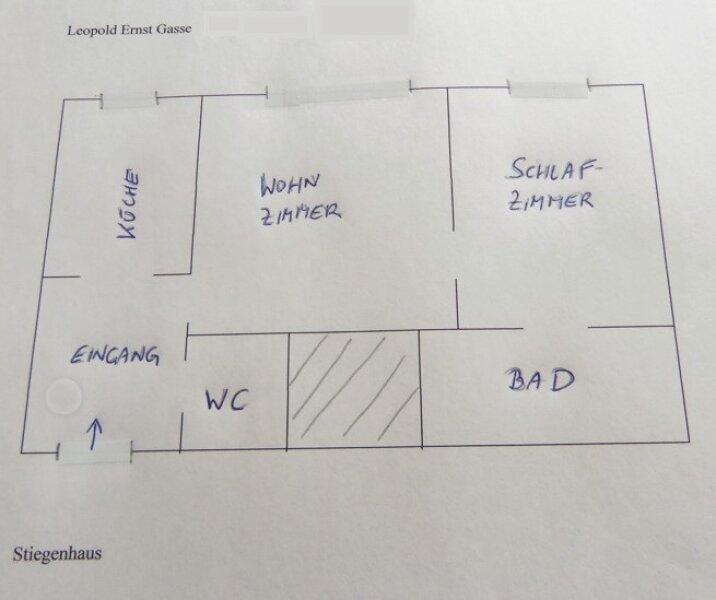 Leopold Ernst Gasse
KÜCHE
WOHN
ZIMMER
SCHLAF-
ZIMMER
EINGANG
WC
BAD
Stiegenhaus